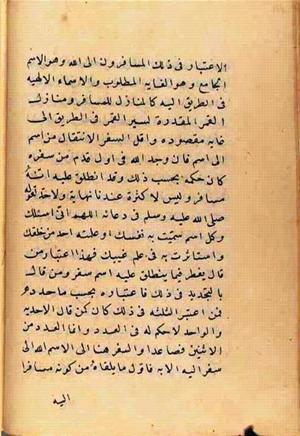 الاعتبار في ذلك المسافرون الى الله وهو الاسم
الجامع وهو الغاية المطلوب والاسماء الالهية
في الطريق اليه كالمنازل للمسافر ومنازل
القمر المقدرة لسير القمر في الطريق الى
غاية مقصوده واقل السفر الانتقال من اسم
الى اسم فان وجد الله في اول قدم من سفره
كان حكمه بحسب ذلك وقد انطلق عليه انه
مسافر وليس لاكثره عندنا نهاية ولا حد لقوله
صلى الله عليه وسلم في دعائه اللهم اني اسئلك
وكل اسم سميت به نفسك او علمته احد من خلقك
او استاثرت به في علم غيبك فهذا اعتبار من
قال يفطر فيما ينطلق عليه اسم سفر ومن قال
بالتحديد في ذلك فاعتباره بحسب ما حدده
فمن اعتبر الثلثة في ذلك كان كمن قال الاحدية
والواحد لا حكم له في العدد وانما العدد من
الاثنين فصاعدا والسفر هنا الى الاسم الله الى
سفر اليه الا به فاول ما يلقاه من كونه مسافرا
اليه